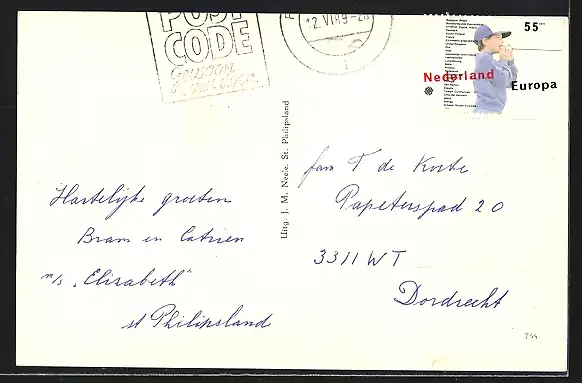 POST
CODE
12.VI89-20
55
Nederland
Europa
Uitg. J. M. Neele, St. Philipsland
Hartelijke groeten
Bram en Catrien
m/s "Elisabeth"
st Philipsland
fam T de Korte
Papeterspad 20
3311 WT
Dordrecht
754